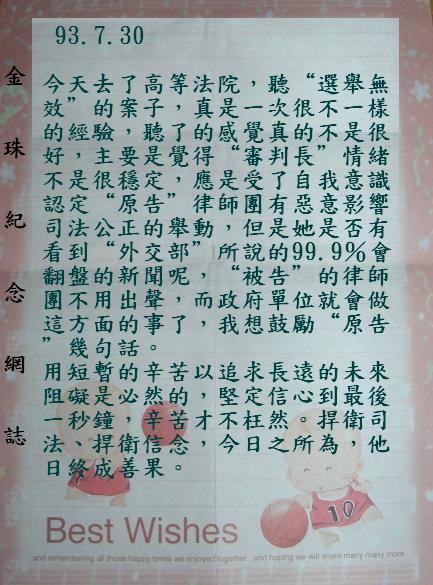 93.7.30
金珠紀念網誌
今天去了高等法院，聽“選舉無
效”的案子，真是一次很不一樣
的經驗，聽了的感覺真的不是很
好，主要是覺得“審判長”情緒
不是很穩定，應是受了自我意識
認定“原告”律師團有惡意影響
司法公正的舉動，但是她是否有
看到“外交部”所說的99.9%會
翻盤的新聞呢，“被告”的律師
團不用出聲，而政府單位就會做
這方面的事了，我想鼓勵“原告
”幾句話。
用短暫的辛苦，追求長遠的未來
阻礙是必然，以堅定信心到最後
一秒鐘，辛苦才不枉然。捍衛司
法、捍衛信念，今日之所為，他
日終成善果。
Best Wishes
and remembering all those happy times we enjoyed together...and hoping we will share many many more
10